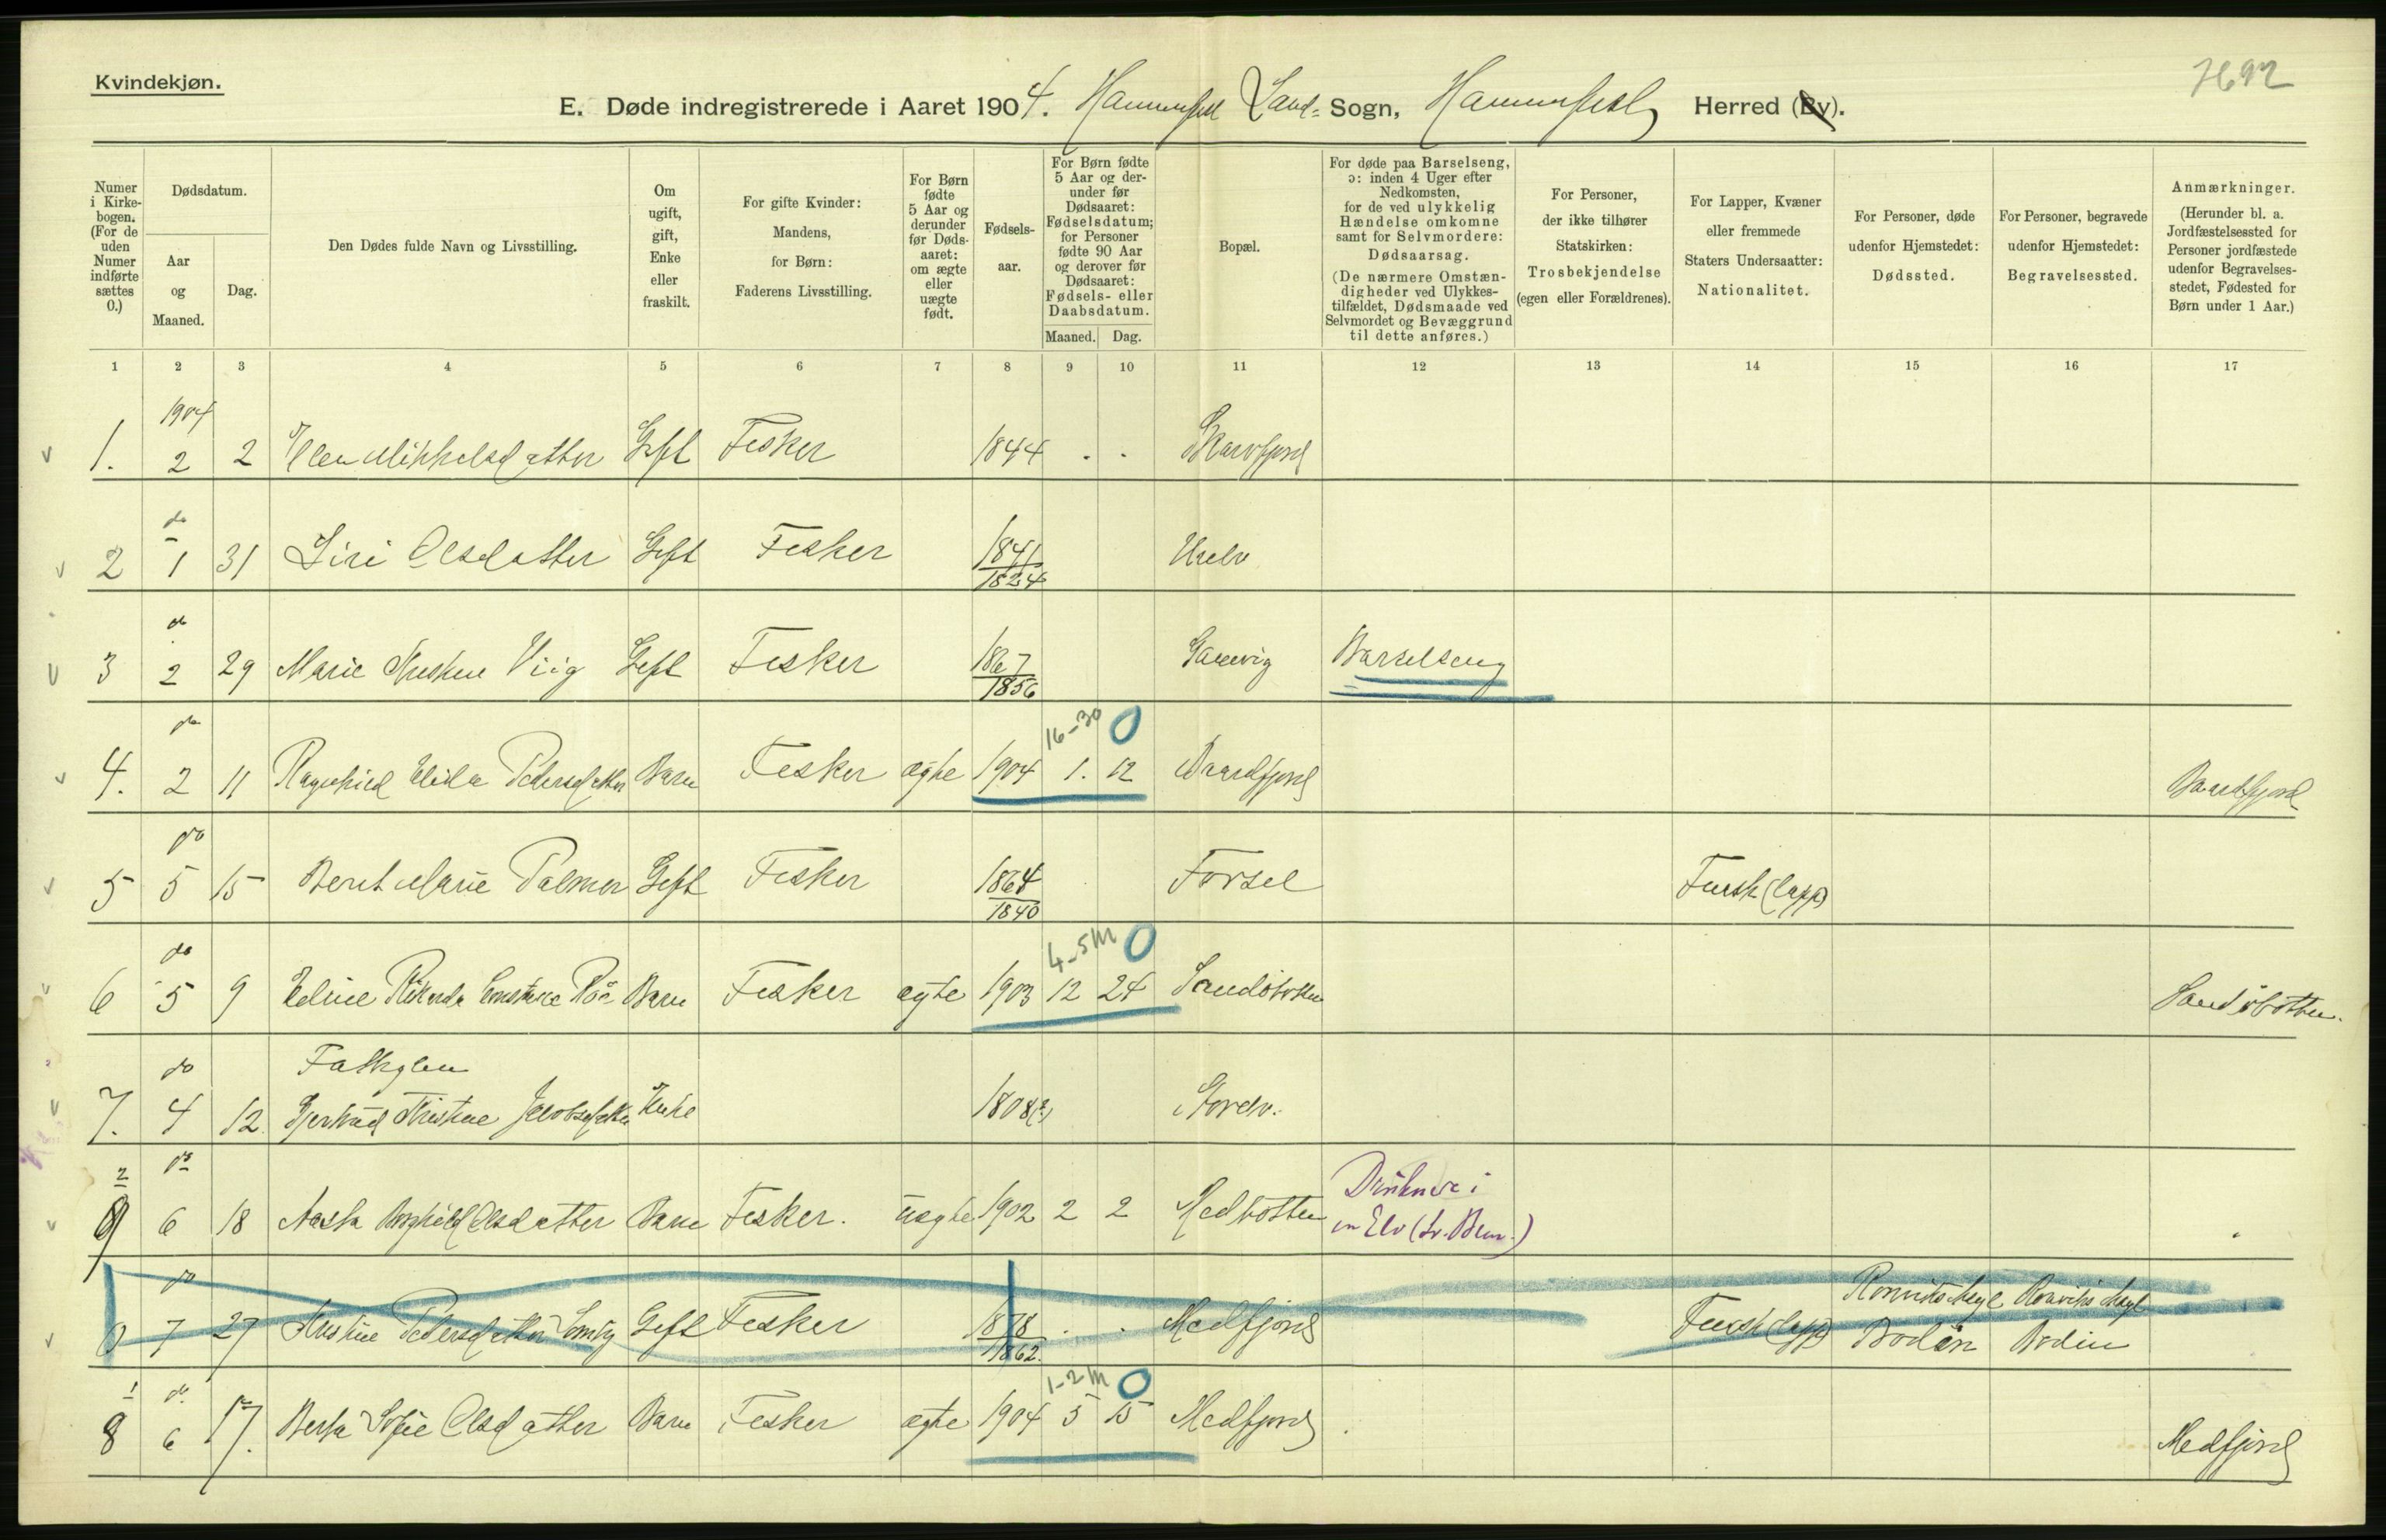 Kvindekjøn.
7692
E. Døde indregistrerede i Aaret 1904. Hammerfest Land- Sogn, Hammerfest Herred (By).
Numer i Kirkebogen. (For de uden Numer indførte sættes 0.)
Dødsdatum.
Aar og Maaned.
Dag.
Den Dødes fulde Navn og Livsstilling.
Om ugift, gift, Enke eller fraskilt.
For gifte Kvinder: Mandens, for Børn: Faderens Livsstilling.
For Børn fødte 5 Aar og derunder før Dødsaaret: om ægte eller uægte født.
Fødselsaar.
For Børn fødte 5 Aar og derunder før Dødsaaret: Fødselsdatum; for Personer fødte 90 Aar og derover før Dødsaaret: Fødsels- eller Daabsdatum.
Maaned. Dag.
Bopæl.
For døde paa Barselseng, ɔ: inden 4 Uger efter Nedkomsten, for de ved ulykkelig Hændelse omkomne samt for Selvmordere: Dødsaarsag. (De nærmere Omstændigheder ved Ulykkestilfældet, Dødsmaade ved Selvmordet og Bevæggrund til dette anføres.)
For Personer, der ikke tilhører Statskirken: Trosbekjendelse (egen eller Forældrenes).
For Lapper, Kvæner eller fremmede Staters Undersaatter: Nationalitet.
For Personer, døde udenfor Hjemstedet: Dødssted.
For Personer, begravede udenfor Hjemstedet: Begravelsessted.
Anmærkninger. (Herunder bl. a. Jordfæstelsessted for Personer jordfæstede udenfor Begravelsesstedet, Fødested for Børn under 1 Aar.)
1 2 3 4 5 6 7 8 9 10 11 12 13 14 15 16 17
1904
1. 2 2 Ellen Mikkelsdatter Gift Fisker 1844 . . Skarvfjord
do
2 1 31 Siri Olsdatter Gift Fisker 1841 1824
do
3 2 29 Marie Kristine Viig Gift Fisker 1867 1856 Barselseng
do 16-30 0
4. 2 11 Ragnhild Elida Pedersdatter Barn Fisker ægte 1904 1. 12 Baardfjord Baardfjord
do
5 5 15 Berit Marie Palmer Gift Fisker 1864 1840 Forsøl Finsk (lapp)
do 4-5 M 0
6 5 9 Barn Fisker ægte 1903 12 24 Sandøbotten Sandøbotten.
do Falkglen
7. 4 12. Gjertrud Kristine Jacobsdatter Enke 1808(?) Storelv.
2 do
9 6 18 Borghild Olsdatter Barn Fisker. uægte 1902 2 2 Medbotten Druknede i en Elv
do
0 7 27 Kristine Pedersdatter Gift Fisker 1878 1862. . . Medfjord Finsk (lapp) Rønvik Bodin Rønvik Bodin
1 do 1-2 M 0
8 6 17. Berta Sofie Olsdatter Barn Fisker ægte 1904 5 15 Medfjord Medfjord